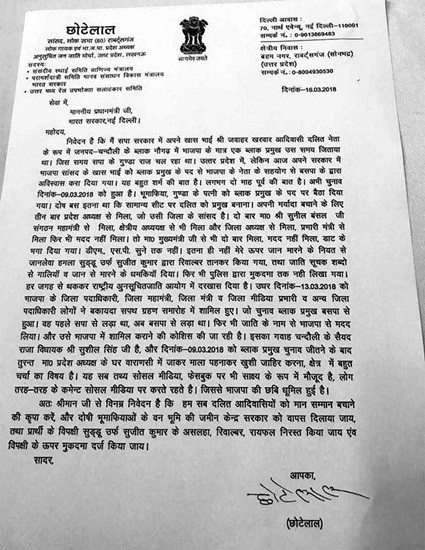 छोटेलाल
सांसद, लोक सभा (80) राबर्ट्सगंज
लोक गायक एवं भा.ज.पा. प्रदेश अध्यक्ष
अनुसूचित जन जाति मोर्चा, उत्तर प्रदेश, लखनऊ
सदस्य:
• संसदीय स्थाई समिति वाणिज्य मन्त्रालय
• परामर्शदात्री समिति मानव संसाधन विकास मन्त्रालय
भारत सरकार
• उत्तर मध्य रेल उपभोक्ता सलाहकार समिति
सत्यमेव जयते
दिल्ली आवास :
70, नार्थ एवेन्यू, नई दिल्ली-110001
सम्पर्क नं. : 0-9013869483
क्षेत्रीय निवास :
ब्रहम नगर, राबर्ट्सगंज (सोनभद्र)
(उत्तर प्रदेश)
सम्पर्क नं. : 0-8004930530
दिनांक-16.03.2018
सेवा में,
माननीय प्रधानमंत्री जी,
भारत सरकार,नई दिल्ली।
महोदय,
निवेदन है कि मैं सपा सरकार में अपने खास भाई श्री जवाहर खरवार आदिवासी दलित नेता
के रूप में जनपद-चन्दौली के ब्लाक नौगढ़ में भाजपा के मात्र एक ब्लाक प्रमुख उस समय जिताया
था। जिस समय सपा के गुण्डा राज चल रहा था। उत्तर प्रदेश में, लेकिन आज अपने सरकार में
भाजपा सांसद के खास भाई को ब्लाक प्रमुख के पद से भाजपा के नेता के सहयोग से बसपा के द्वारा
अविस्वास करा दिया गया। यह बहुत शर्म की बात है। लगभग दो माह पूर्व की बात है। अभी चुनाव
दिनांक-09.03.2018 को हुआ है। भूमाफिया, गुण्डा के पत्नी को ब्लाक प्रमुख के पद पर बैठा दिया
गया। दोष बस इतना था कि सामान्य सीट पर दलित को प्रमुख बनाना। अपनी मर्यादा बचाने के लिए
तीन बार प्रदेश अध्यक्ष से मिला, जो उसी जिला के सांसद है। दो बार मा0 श्री सुनील बंसल जी
संगठन महामंत्री से मिला, क्षेत्रीय अध्ययक्ष से भी मिला और जिला अध्यक्ष से मिला, प्रभारी मंत्री से
मिला फिर भी मदद नहीं मिला। तो मा0 मुख्यमंत्री जी से भी दो बार मिला, मदद नहीं मिला, डाट के
भगा दिया गया। डीएम., एस.पी. सुने तक नहीं। इतना ही नहीं मेरे ऊपर जान मारने के नियत से
जानलेवा हमला सुड्डू उर्फ सुजीत कुमार द्वारा रिवाल्बर तानकर किया गया, तथा जाति सूचक शब्दो
से गालियों व जान से मारने के धमकियाँ दिया। फिर भी पुलिस द्वारा मुकदमा तक नही लिखा गया।
हर जगह से थककर राष्ट्रीय अनुसूचितजाति आयोग में दरखास दिया है। उधर दिनांक-13.03.2018 को
भाजपा के जिला पदाधिकारी, जिला महामंत्री, जिला मंत्री व जिला मीडिया प्रभारी व अन्य जिला
पदाधिकारी लोगों ने बकायदा सपथ ग्रहण समारोह में शामिल हुए। जो चुनाव ब्लाक प्रमुख बसपा से
हुआ। वह पहले सपा से लड़ा था, अब बसपा से लड़ा था। फिर भी जाति के नाम से भाजपा से मदद
लिया। और उसे भाजपा में शामिल कराने की कोशिश की जा रही है। इसका गवाह चन्दौली के सैयद
राजा विधायक श्री सुशील सिंह जी है, और दिनांक-09.03.2018 को ब्लाक प्रमुख चुनाव जीतने के बाद
तुरन्त मा0 प्रदेश अध्यक्ष के घर वाराणसी में जाकर माला पहनाकर खुशी जाहिर करना, क्षेत्र में बहुत
चर्चा का विषय है। यह सब तथ्य सोसल मिडिया, फेसबुक पर भी साक्ष्य के रूप में मौजूद है, लोग
तरह-तरह के कमेन्ट सोसल मीडिया पर करते रहते है। जिससे भाजपा की छबि धूमिल हुई है।
अत: श्रीमान जी से विनम्र निवेदन है कि हम सब दलित आदिवासियों को मान सम्मान बचाने
की कृपा करें, और दोषी भूमाफियाओं के वन भूमि की जमीन केन्द्र सरकार को वापस दिलाया जाय,
तथा प्रार्थी के विपक्षी सुड्डू उर्फ सुजीत कुमार के असलहा, रिवाल्बर, रायफल निरस्त किया जाय एंव
विपक्षी के ऊपर मुकदमा दर्ज किया जाय।
सादर,
आपका,
छोटेलाल
(छोटेलाल)